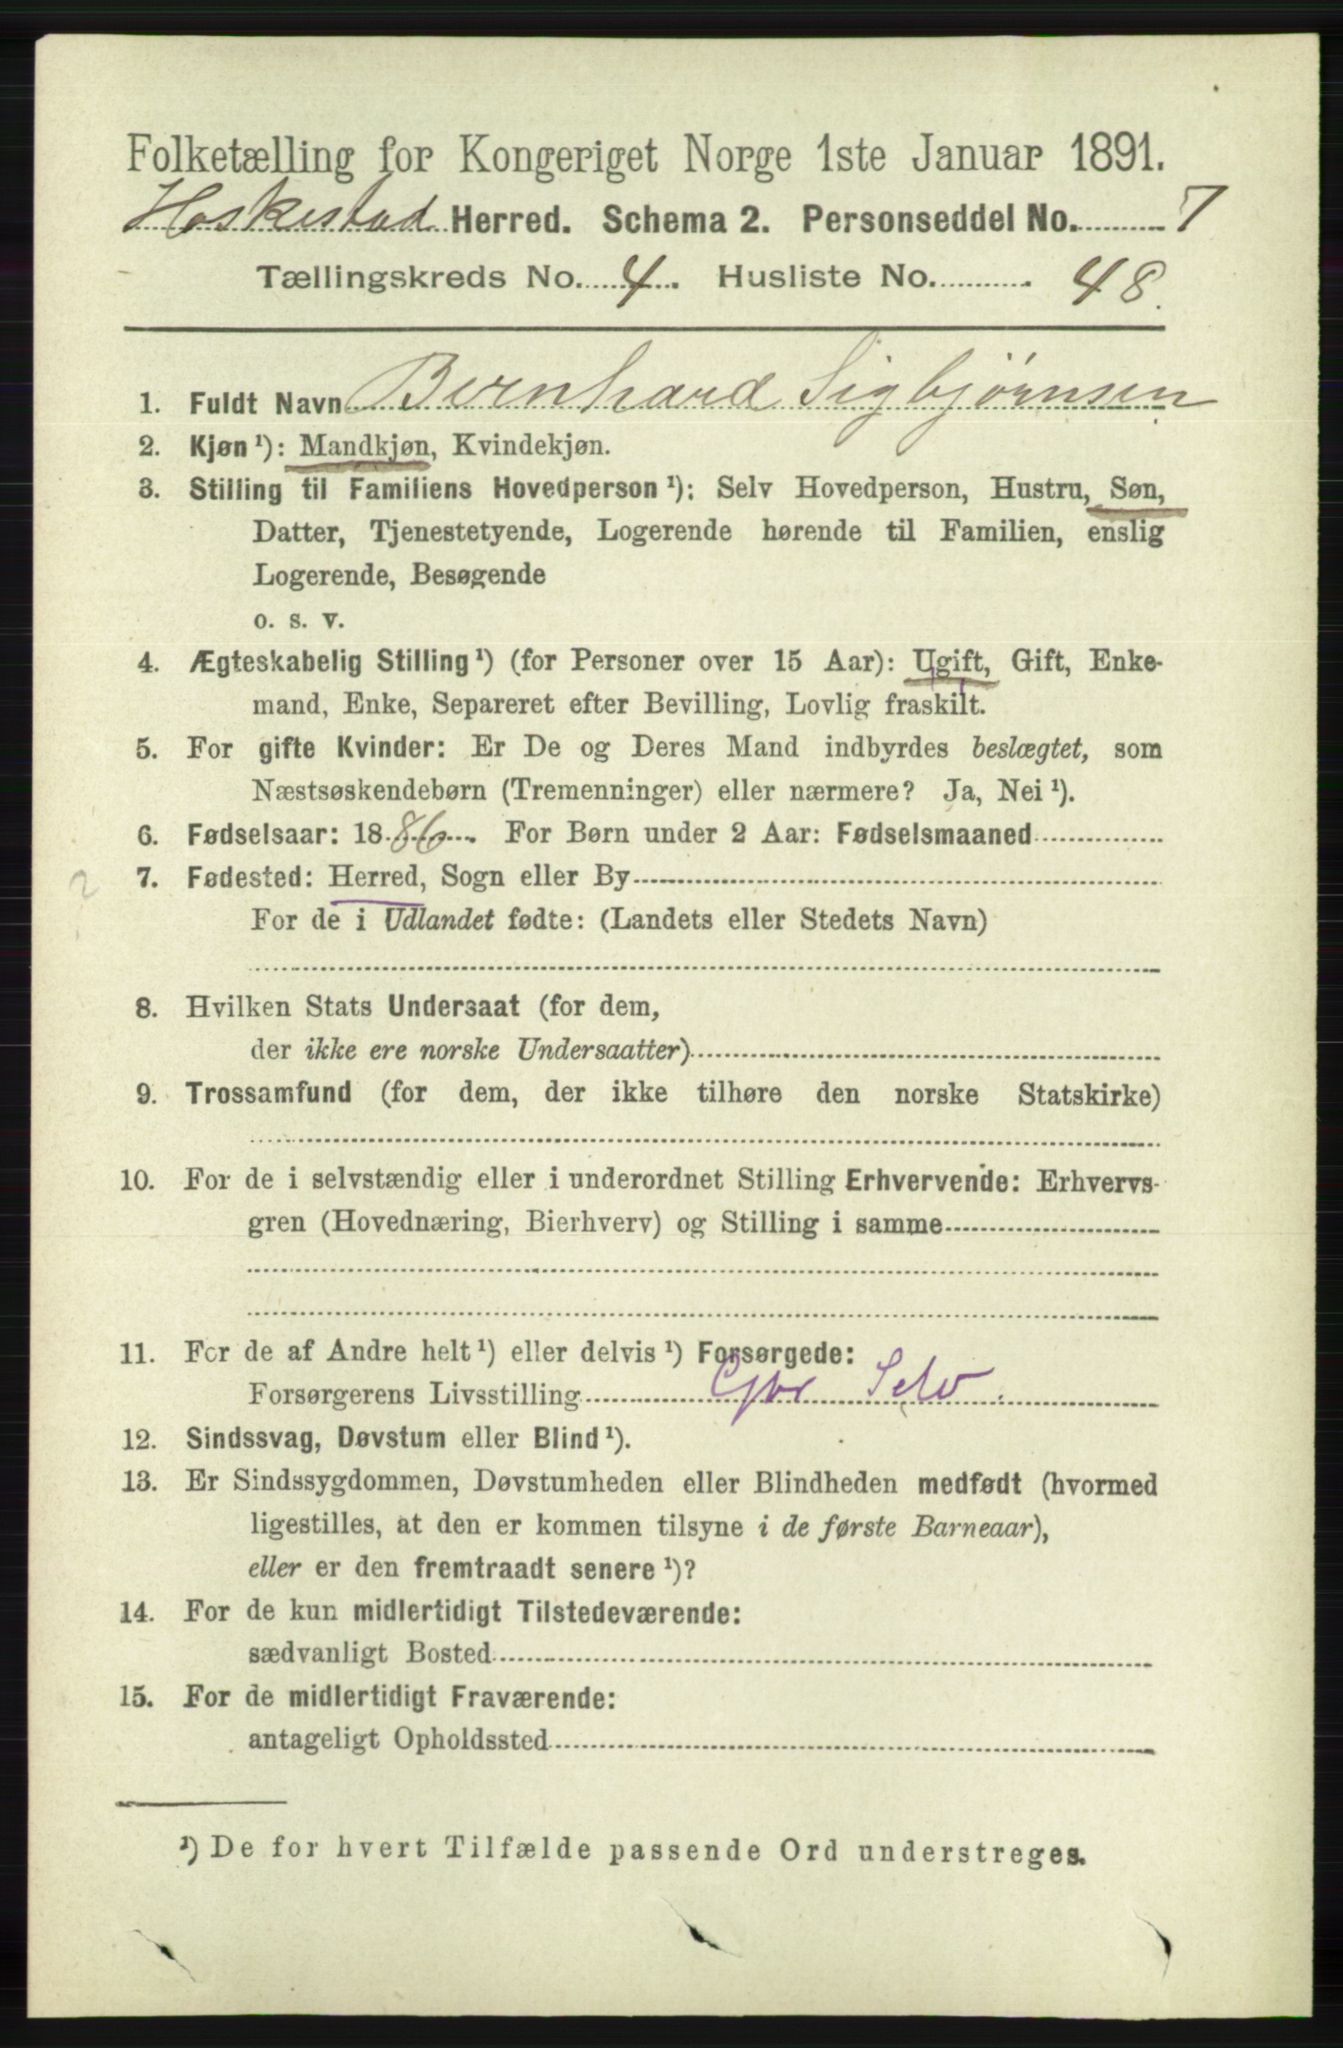 Folketælling for Kongeriget Norge 1ste Januar 1891.
Heskestad Herred. Schema 2. Personseddel No. 7
Tællingskreds No. 4. Husliste No. 48.
1. Fuldt Navn Bernhard Sigbjørnsen
2. Kjøn ¹): Mandkjøn, Kvindekjøn.
3. Stilling til Familiens Hovedperson ¹): Selv Hovedperson, Hustru, Søn,
Datter, Tjenestetyende, Logerende hørende til Familien, enslig
Logerende, Besøgende
o. s. v.
4. Ægteskabelig Stilling ¹) (for Personer over 15 Aar): Ugift, Gift, Enke-
mand, Enke, Separeret efter Bevilling, Lovlig fraskilt.
5. For gifte Kvinder: Er De og Deres Mand indbyrdes beslægtet, som
Næstsøskendebørn (Tremenninger) eller nærmere? Ja, Nei ¹).
6. Fødselsaar: 1886. For Børn under 2 Aar: Fødselsmaaned
2 7. Fødested: Herred, Sogn eller By
For de i Udlandet fødte: (Landets eller Stedets Navn)
8. Hvilken Stats Undersaat (for dem,
der ikke ere norske Undersaatter)
9. Trossamfund (for dem, der ikke tilhøre den norske Statskirke)
10. For de i selvstændig eller i underordnet Stilling Erhvervende: Erhvervs-
gren (Hovednæring, Bierhverv) og Stilling i samme
11. For de af Andre helt ¹) eller delvis ¹) Forsørgede:
Forsørgerens Livsstilling Gbr Selv.
12. Sindssvag, Døvstum eller Blind ¹).
13. Er Sindssygdommen, Døvstumheden eller Blindheden medfødt (hvormed
ligestilles, at den er kommen tilsyne i de første Barneaar),
eller er den fremtraadt senere ¹)?
14. For de kun midlertidigt Tilstedeværende:
sædvanligt Bosted
15. For de midlertidigt Fraværende:
antageligt Opholdssted
¹) De for hvert Tilfælde passende Ord understreges.